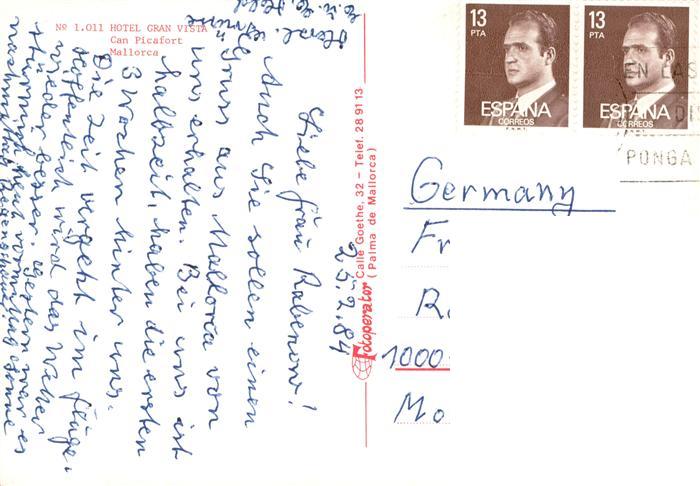 Nº 1.011 HOTEL GRAN VISTA
Can Picafort
Mallorca
25.2.84
Liebe Frau Rabenow!
Auch Sie sollen einen
Gruss aus Mallorca von
uns erhalten. Bei uns ist
halbzeit, haben die ersten
3 Wochen hinter uns.
Die Zeit vergeht im Fluge.
Hoffentlich wird das Wetter
wieder besser. Gestern war es
stürmisch, heut vormittag Sonne
nachmittag
Herzl.
Fotoperator Calle Goethe, 32 – Telef. 28 91 13
(Palma de Mallorca)
13
PTA
ESPAÑA
CORREOS
F.N.M.T.
13
PTA
ESPAÑA
CORREOS
EN LAS
DIS
PONGA
Germany
Fr
R
1000
Mo